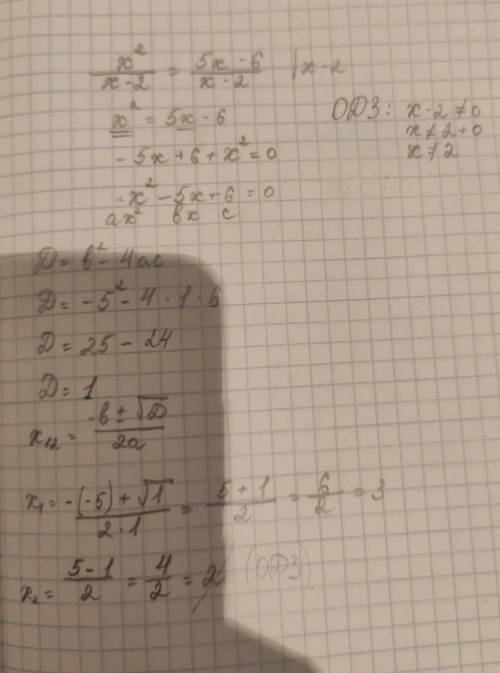 x²/(x-2) = (5x-6)/(x-2) | x-2
ОДЗ: x-2≠0
x² = 5x-6
x≠2+0
x≠2
-5x+6+x²=0
x²-5x+6=0
ax² bx c
D=b²-4ac
D=-5²-4·1·6
D=25-24
D=1
x₁₂=(-b±√D)/2a
x₁=(-(-5)+√1)/(2·1) = (5+1)/2 = 6/2 = 3
x₂=(5-1)/2 = 4/2 = 2 (ОДЗ)